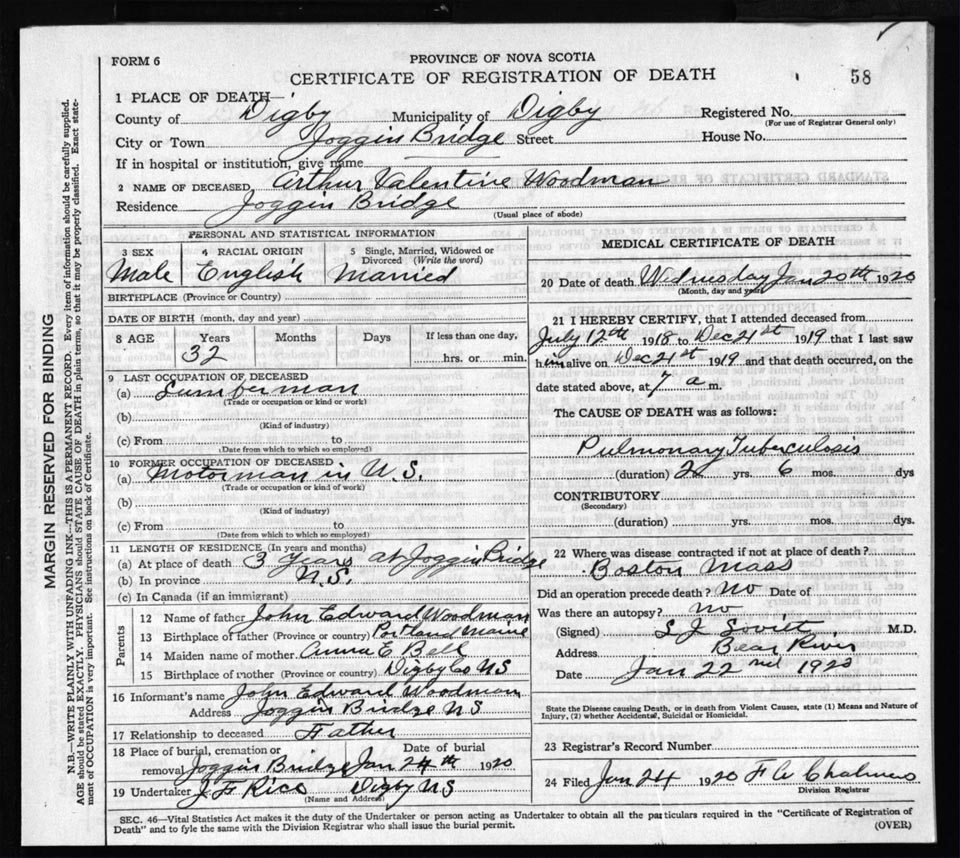 FORM 6
PROVINCE OF NOVA SCOTIA
CERTIFICATE OF REGISTRATION OF DEATH
58
1 PLACE OF DEATH—
County of Digby Municipality of Digby Registered No.
(For use of Registrar General only)
City or Town Joggin Bridge Street House No.
If in hospital or institution, give name
2 NAME OF DECEASED Arthur Valentine Woodman
Residence Joggin Bridge
(Usual place of abode)
MARGIN RESERVED FOR BINDING
N.B.—WRITE PLAINLY WITH UNFADING INK—THIS IS A PERMANENT RECORD. Every item of information should be carefully supplied.
AGE should be stated EXACTLY. PHYSICIANS should STATE CAUSE OF DEATH in plain terms, so that it may be properly classified. Exact state-
ment of OCCUPATION is very important. See instructions on back of Certificate.
PERSONAL AND STATISTICAL INFORMATION
3 SEX 4 RACIAL ORIGIN 5 Single, Married, Widowed or
Divorced (Write the word)
Male English Married
BIRTHPLACE (Province or Country)
DATE OF BIRTH (month, day and year)
8 AGE Years Months Days If less than one day,
32 hrs. or min.
9 LAST OCCUPATION OF DECEASED
(a) Lumberman
(Trade or occupation or kind or work)
(b)
(Kind of industry)
(c) From to
(Date from which to which so employed)
10 FORMER OCCUPATION OF DECEASED
(a) Motorman in U.S.
(Trade or occupation or kind of work)
(b)
(Kind of industry)
(c) From to
(Date from which to which so employed)
11 LENGTH OF RESIDENCE (In years and months)
(a) At place of death 3 Years at Joggin Bridge
(b) In province N.S.
(c) In Canada (if an immigrant)
Parents
12 Name of father John Edward Woodman
13 Birthplace of father (Province or country) Portland Maine
14 Maiden name of mother Anna E. Bell
15 Birthplace of mother (Province or country) Digby Co NS
16 Informant's name John Edward Woodman
Address Joggin Bridge NS
17 Relationship to deceased Father
18 Place of burial, cremation or Date of burial
removal Joggin Bridge Jan 24th 1920
19 Undertaker J F Rice Digby NS
(Name and Address)
MEDICAL CERTIFICATE OF DEATH
20 Date of death Wednesday Jan 20th 1920
(Month, day and year)
21 I HEREBY CERTIFY, that I attended deceased from
July 12th 1918 to Dec 21st 1919 that I last saw
him alive on Dec 21st 1919 and that death occurred, on the
date stated above, at 7 a m.
The CAUSE OF DEATH was as follows:
Pulmonary Tuberculosis
(duration) 2 yrs. 6 mos. dys
CONTRIBUTORY
(Secondary)
(duration) yrs. mos. dys.
22 Where was disease contracted if not at place of death?
Boston Mass
Did an operation precede death? No Date of
Was there an autopsy? No
(Signed) L J Lovitt M.D.
Address Bear River
Date Jan 22nd 1920
State the Disease causing Death, or in death from Violent Causes, state (1) Means and Nature of
Injury, (2) whether Accidental, Suicidal or Homicidal.
23 Registrar's Record Number
24 Filed Jan 24 1920 F W Chalmers
Division Registrar
SEC. 46—Vital Statistics Act makes it the duty of the Undertaker or person acting as Undertaker to obtain all the particulars required in the "Certificate of Registration of
Death" and to fyle the same with the Division Registrar who shall issue the burial permit.
(OVER)